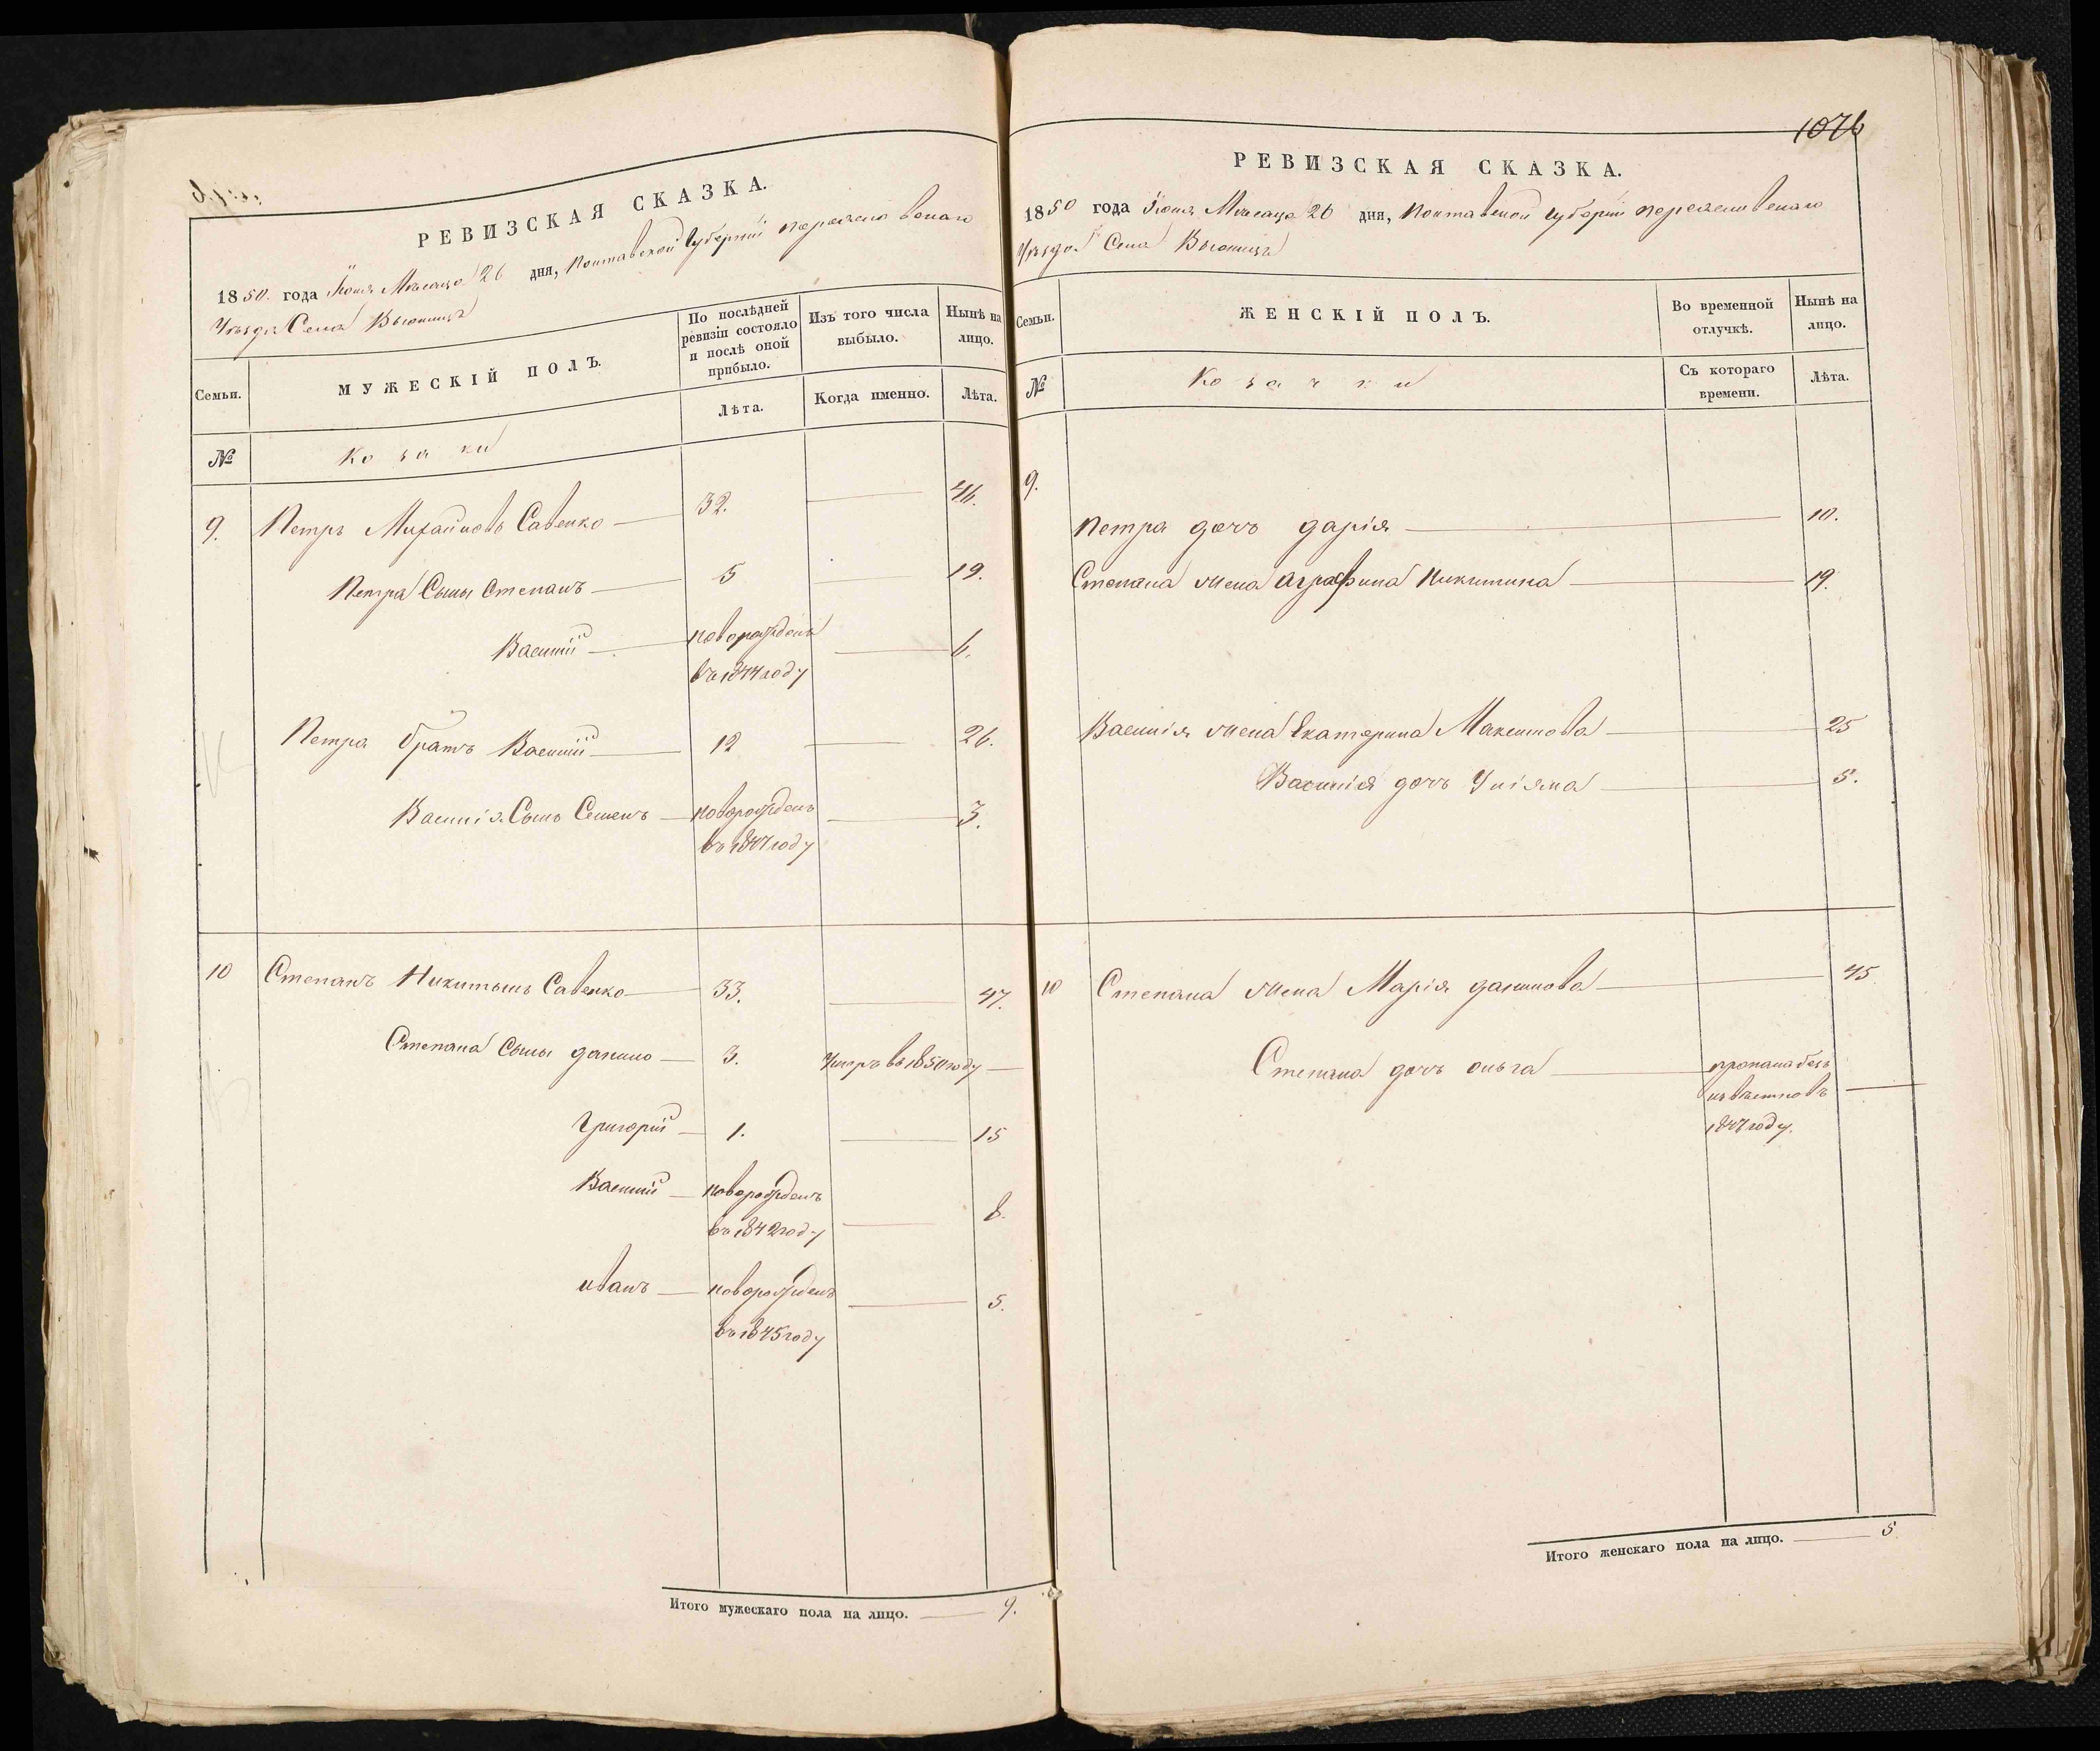 РЕВИЗСКАЯ СКАЗКА.
1850. года Іюня Мѣсяца 26 дня, Полтавской Губерніи Переяславскаго
Уѣзда Села Вьюнища
Семьи. МУЖЕСКІЙ ПОЛЪ. По послѣдней ревизіи состояло и послѣ оной прибыло. Изъ того числа выбыло. Нынѣ на лицо.
№ Лѣта. Когда именно. Лѣта.
Козаки
9. Петръ Михайловъ Савенко 32. 46.
Петра Сыны Степанъ 5 19.
Василій новорожденъ 6.
въ 1844 году
Петра братъ Василій 12 26.
Василія Сынъ Семенъ новорожденъ 3.
въ 1847 году
10 Степанъ Никитинъ Савенко 33. 47.
Степана Сыны данило 3. Умеръ въ 1850 году
Григорій 1. 15
Василій новорожденъ 8.
въ 1842 году
иванъ новорожденъ 5.
въ 1845 году
Итого мужескаго пола на лицо. 9.
1076
РЕВИЗСКАЯ СКАЗКА.
1850 года Іюня Мѣсяца 26 дня, Полтавской Губерніи Переяславскаго
Уѣзда Села Вьюнища
Семьи. ЖЕНСКІЙ ПОЛЪ. Во временной отлучкѣ. Нынѣ на лицо.
№ Съ котораго времени. Лѣта.
Козачки
9.
Петра дочь дарія 10.
Степана жена Аграфина Никитина 19.
Василія жена Екатерина Максимова 25
Василія дочь Уліяна 5.
10 Степана жена Марія данилова 45
Степана дочь ольга пропала безъ
извѣстновъ
1847 году.
Итого женскаго пола на лицо. 5